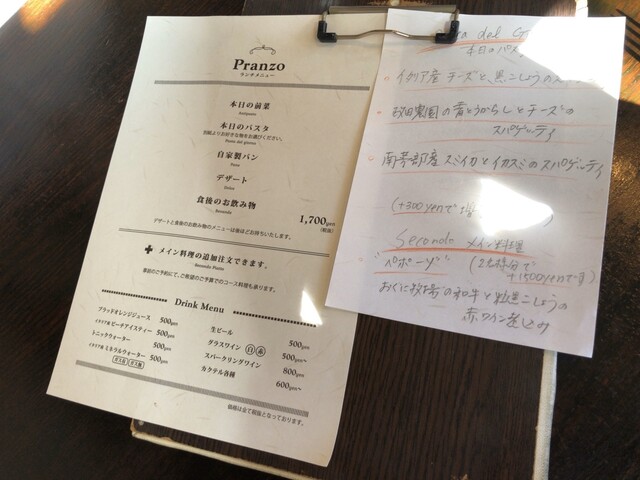 Pranzo
ランチメニュー
本日の前菜
Antipasto
本日のパスタ
別紙よりお好きな物をお選びください。
Pasta del giorno
自家製パン
Pane
デザート
Dolce
食後のお飲み物
Bevande
1,700yen
(税抜)
デザートと食後のお飲み物のメニューは後ほどお持ちいたします。
✚ メイン料理の追加注文できます。
Secondo Piatto
事前のご予約にて、ご要望のご予算でのコース料理も承ります。
Drink Menu
ブラッドオレンジジュース 500yen
イタリア産 ピーチアイスティー 500yen
トニックウォーター 500yen
イタリア産 ミネラルウォーター 500yen
ガス有 ガス無
生ビール 500yen
グラスワイン 白 赤 500yen~
スパークリングワイン 800yen
カクテル各種 600yen~
価格は全て税抜となっております。
dal
本日のパスタ
イタリア産チーズと黒こしょうの
農園の青とうがらしとチーズの
スパゲッティ
南芽部産スミイカとイカスミのスパゲッティ
(+300yenで
Secondo メイン料理
"ペポーゾ" (2名様分で
+1500yenです)
おくに牧場の和牛と粒黒こしょうの
赤ワイン煮込み